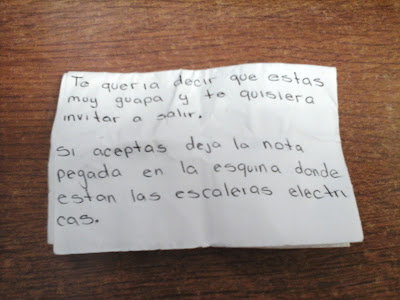 Te queria decir que estas
muy guapa y te quisiera
invitar a salir.
Si aceptas deja la nota
pegada en la esquina donde
estan las escaleras electri
cas.